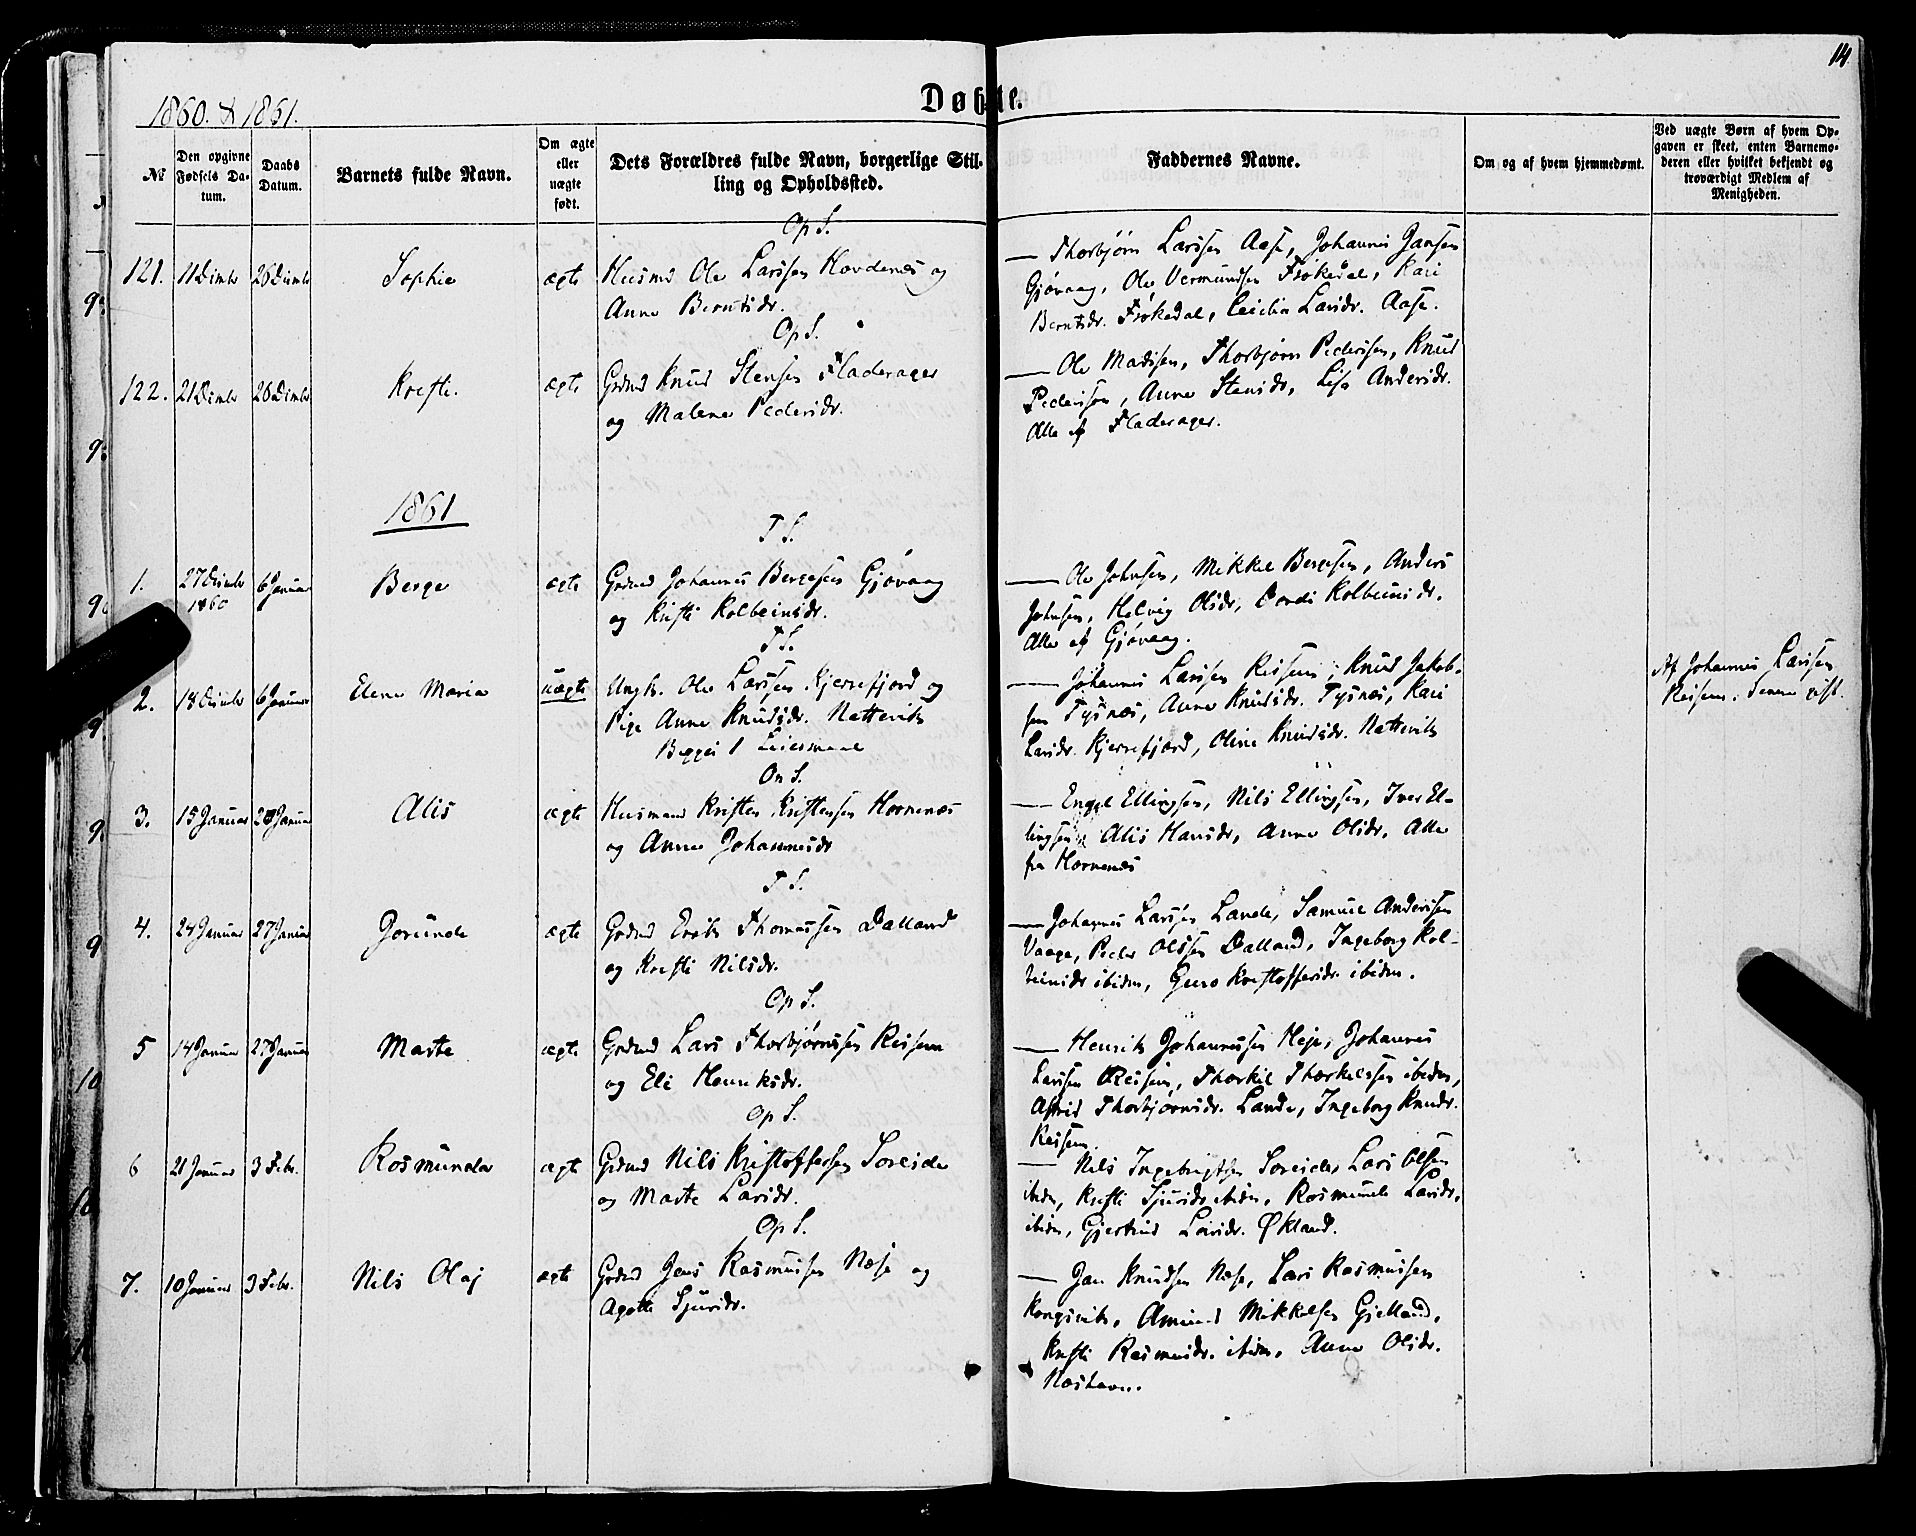 14
1860. & 1861.
Døbte.
№
Den opgivne Fødsels Datum.
Daabs Datum.
Barnets fulde Navn.
Om ægte eller uægte født.
Dets Forældres fulde Navn, borgerlige Stilling og Opholdssted.
Faddernes Navne.
Om og af hvem hjemmedøbt.
Ved uægte Børn af hvem Opgaven er skeet, enten Barnemoderen eller hvilket bekjendt og troværdigt Medlem af Menigheden.
Op S.
121. 11 Dimbr 26 Dimbr Sophie ægte Husmd Ole Larssen Hovdenes og
Anne Berntsdr.
— Thorbjørn Larssen Aase, Johannes Jansen
Gjøvaag, Ole Vermundsen Frøkedal, Kari
Berntsdr. Frøkedal, Cecilia Larsdr. Aase.
Op S.
122. 21 Dimbr 26 Dimbr Kristi. ægte Grdmd Knud Stensen Fladerager
og Malene Pedersdr.
— Ole Madssen, Thorbjørn Pederssen, Knud
Pederssen, Anne Stensdr, Lisa Andersdr.
Alle af Fladerager.
1861
T S.
1. 27 Dcimbr 1860 6 Januar Berge ægte Grdmd Johannes Bergesen Gjøvaag
og Kristi Kolbeinsdr.
— Ole Johnsen, Mikkel Bergesen, Anders
Johnsen, Helvig Olsdr, Dordi Kolbeinsdr.
Alle af Gjøvaag.
T S.
2. 18 Dcimbr 6 Januar Elena Maria uægte Ungk. Ole Larssen Kjerrefjord og
Pige Anne Knudsdr. Nattevik
Begges 1 Leiermaal
— Johannes Larssen Reisem, Knud Jakob-
sen Tysnæs, Anne Knudsdr. Tysnæs, Kari
Larsdr. Kjerrefjord, Oline Knudsdr. Nattevik
Af Johannes Larssen
Reisem.
On S.
3. 15 Januar 20 Januar Alis ægte Husmand Kristen Kristensen Hornenæs
og Anna Johannesdr
— Engel Ellingsen, Nils Ellingsen, Iver El-
lingsen, Alis Hansdr, Anna Olsdr, Alle
fra Hornenæs
T S.
4. 24 Januar 27 Januar Gorunda ægte Grdmd Erik Thomassen Dalland
og Kristi Nilsdr.
— Johannes Larssen Lande, Samuel Anderssen
Vaage, Peder Olssen Dalland, Ingeborg Kol-
beinsdr ibidem, Guro Kristoffersdr. ibidem.
Op S.
5 14 Januar 27 Januar Marte ægte Grdmd Lars Thorbjørnssen Reisem
og Eli Henriksdr.
— Henrik Johannessen Heje, Johannes
Larssen Reisem, Thorkil Thorkelssen ibidem,
Astrid Thorbjørnsdr. Lande, Ingeborg Knudr.
Reisem.
Op S.
6 21 Januar 3 Febr. Rosmunda ægte Grdmd Nils Kristoffersen Soreide
og Marte Larsdr.
— Nils Ingebrigtsen Soreide, Lars Olsen
ibidm, Kristi Sjursdr ibidm, Rosmunda Larsdr,
ibidm, Gjertrud Larsdr. Økland.
Op S.
7. 10 Januar 3 Febr. Nils Olaj ægte Grdmd Jens Rasmussen Næse og
Agate Sjursdr.
— Jan Knudsen Næse, Lars Rasmussen
Kongsvik, Amund Mikkelsen Gjelland,
Kristi Rasmusdr. ibidm, Anna Olsdr.
Næshavn.